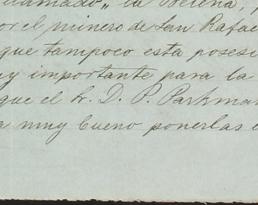 llamado „ la Bocina,
por el minero de San Rafae
que tampoco esta posesi
uy importante para la
que el Sr. D. P. Parkman
a muy bueno ponerlas e